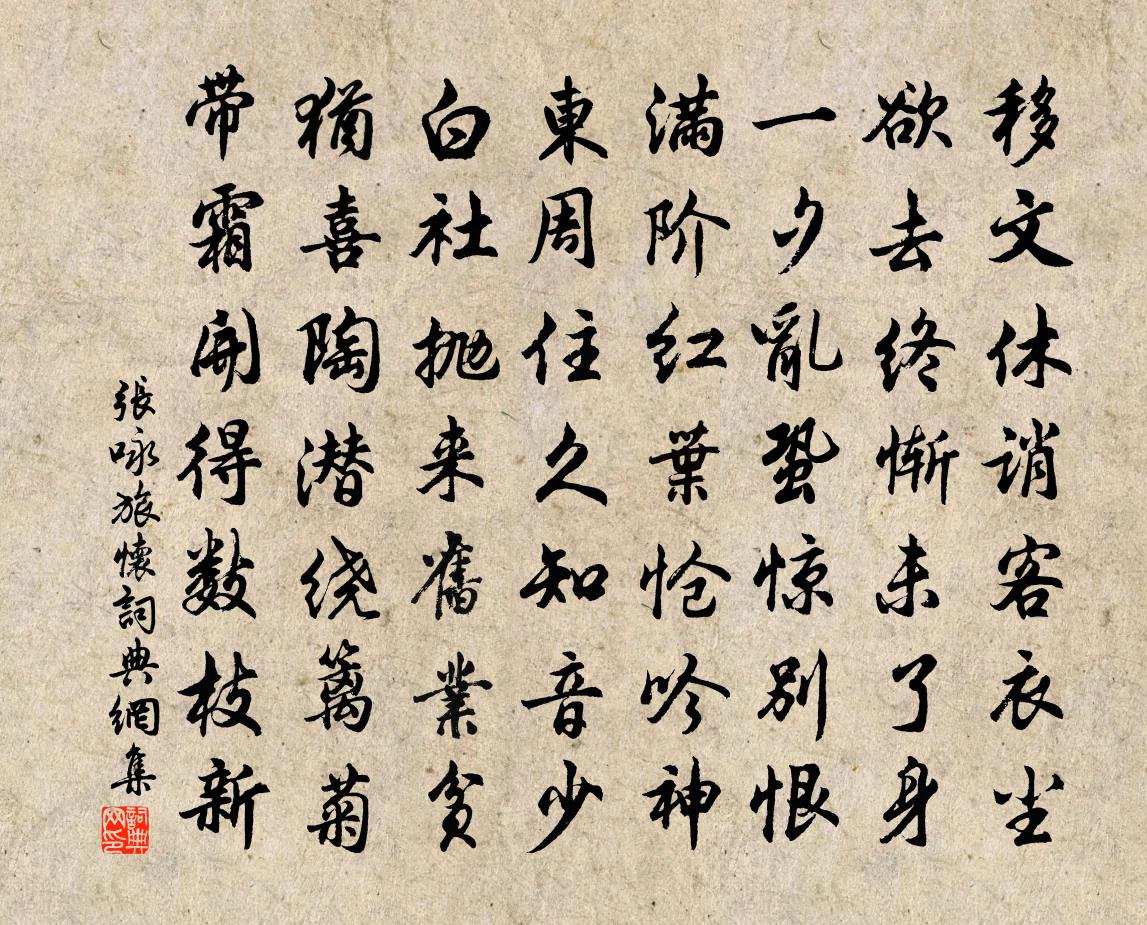 移文休诮客衣尘
欲去终惭未了身
一夕亂蛩惊别恨
满阶红葉怆吟神
東周住久知音少
白社抛来舊業贫
猶喜陶潜绕篱菊
带霜開得数枝新
張咏旅懷詞典網集
詞典网印